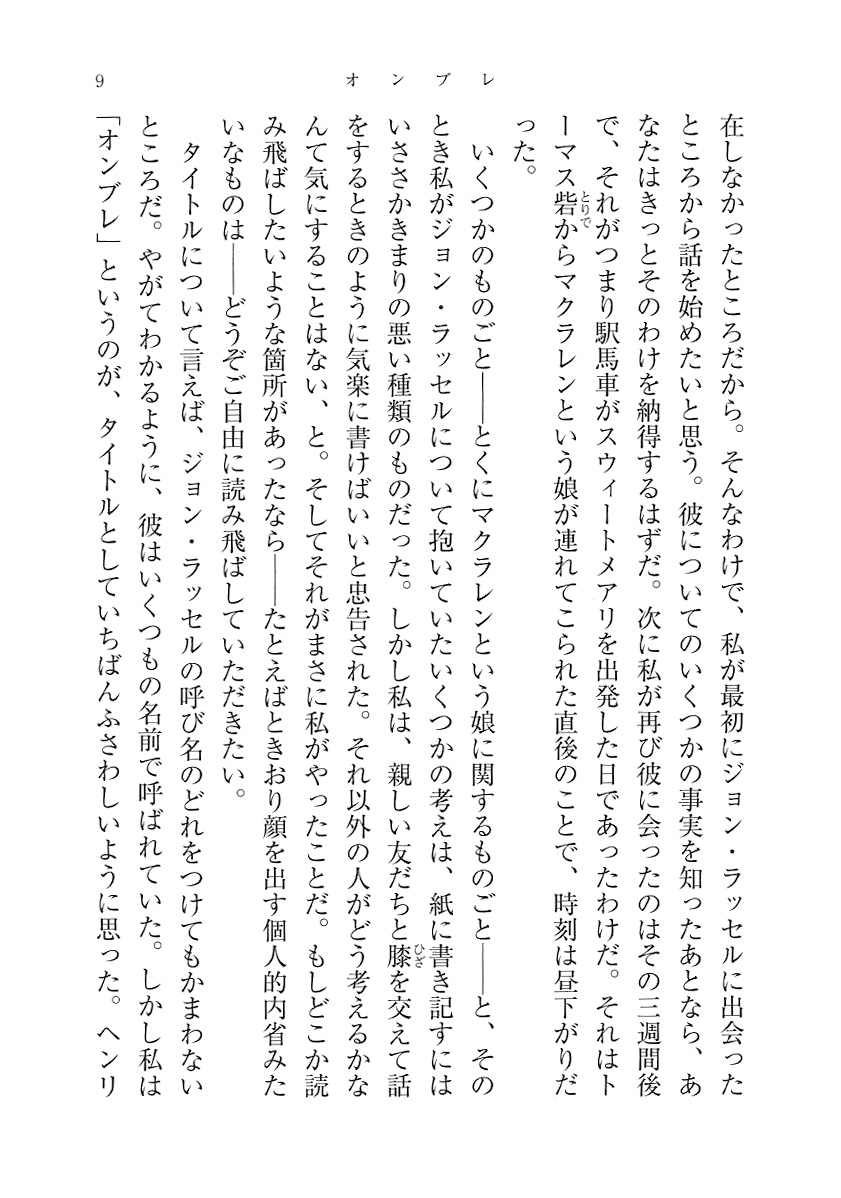 9
オンブレ
在しなかったところだから。そんなわけで、私が最初にジョン・ラッセルに出会った
ところから話を始めたいと思う。彼についてのいくつかの事実を知ったあとなら、あ
なたはきっとそのわけを納得するはずだ。次に私が再び彼に会ったのはその三週間後
で、それがつまり駅馬車がスウィートメアリを出発した日であったわけだ。それはト
ーマス砦とりでからマクラレンという娘が連れてこられた直後のことで、時刻は昼下がりだ
った。
いくつかのものごと――とくにマクラレンという娘に関するものごと――と、その
とき私がジョン・ラッセルについて抱いていたいくつかの考えは、紙に書き記すには
いささかきまりの悪い種類のものだった。しかし私は、親しい友だちと膝ひざを交えて話
をするときのように気楽に書けばいいと忠告された。それ以外の人がどう考えるかな
んて気にすることはない、と。そしてそれがまさに私がやったことだ。もしどこか読
み飛ばしたいような箇所があったなら――たとえばときおり顔を出す個人的内省みた
いなものは――どうぞご自由に読み飛ばしていただきたい。
タイトルについて言えば、ジョン・ラッセルの呼び名のどれをつけてもかまわない
ところだ。やがてわかるように、彼はいくつもの名前で呼ばれていた。しかし私は
「オンブレ」というのが、タイトルとしていちばんふさわしいように思った。ヘンリ